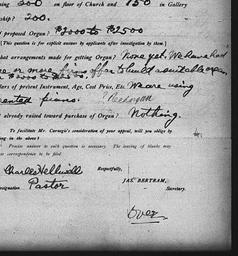 ing 300 on floor of Church and 150 in Gallery
ship? 200.
f proposed Organ? $2000 to $2500
[This question is for explicit answer by applicants after investigation by them]
hat arrangements made for getting Organ? None yet. We have had
or more firms offer to build a suitable organ
$2000 to $2500
lars of present Instrument, Age, Cost Price, Etc. We are using
rented piano.
already raised toward purchase of Organ? Nothing.
To facilitate Mr. Carnegie's consideration of your appeal, will you oblige by
ing in the above?
Precise answer to each question is necessary. The leaving of blanks may
es correspondence to be filed.
Charles Hellwell
Respectfully,
esignation Pastor
JAS. BERTRAM,
Secretary.
Over